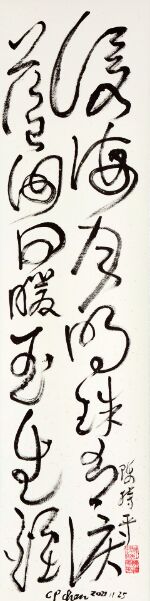 滄海月明珠有淚
藍田日暖玉生煙
CP Chen 2021.11.25